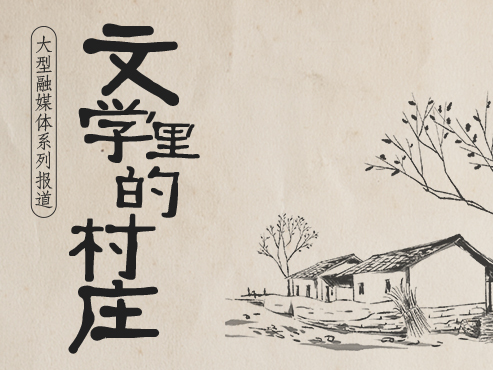 大型融媒体系列报道
文学里的村庄